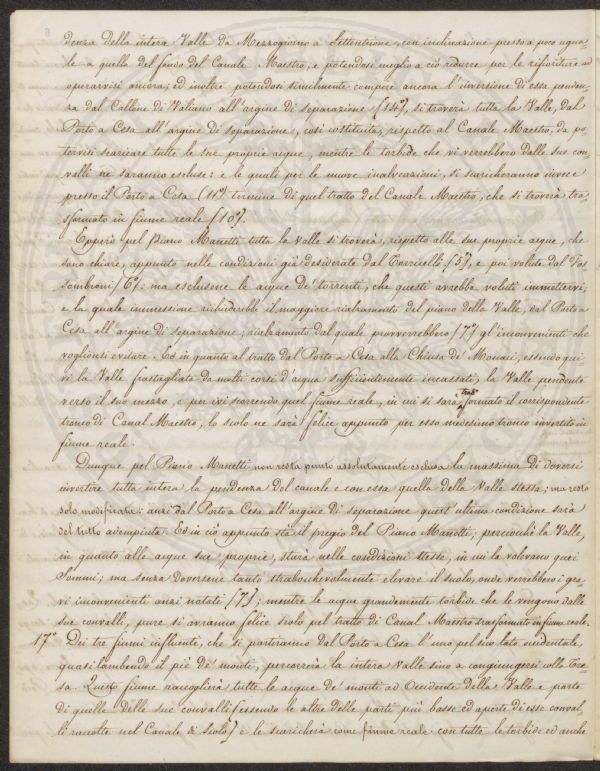 denza della intera Valle da Mezzogiorno a Settentrione, con inclinazione presso a poco ugua-
le a quella del fondo del Canale Maestro, e potendosi meglio a ciò ridurre per le rifioriture ad
operarvisi ancora; ed inoltre potendosi similmente compiere ancora l'inversione di essa penden-
za dal Callone di Valiano all'argine di separazione (14°), si troverà tutta la Valle, dal
Porto a Cesa all'argine di separazione, così costituita, rispetto al Canale Maestro, da po-
tervisi scaricare tutte le sue proprie acque, mentre le torbide che vi verrebbero dalle sue con-
valli ne saranno escluse: e le quali per le nuove inalveazioni, si scaricheranno invece
presso il Porto a Cesa (11°) termine di quel tratto del Canale Maestro, che si troverà tra-
sformato in fiume reale (10°).
Epperò pel Piano Manetti tutta la Valle si troverà, rispetto alle sue proprie acque, che
sono chiare, appunto nelle condizioni già desiderate dal Torricelli (5°), e poi volute dal Fos-
sombroni (6°): ma esclusene le acque de' torrenti, che questi avrebbe voluti immettervi;
e la quale immessione richiderebbe il maggiore rialzamento del piano della Valle, dal Porto a
Cesa all'argine di separazione; rialzamento dal quale provverrebbero (7°) gl'inconvenienti che
vogliansi evitare. Ed in quanto al tratto dal Porto a Cesa alla Chiusa de' Monaci, essendo qui-
vi la Valle frastagliata da molti corsi d'acqua sufficientemente incassati, la Valle pendente
verso il suo mezzo, e per ivi scorrendo quel fiume reale, in cui si sarà trasformato il corrispondente
tronco di Canal Maestro, lo scolo ne sarà felice appunto per esso medesimo tronco invertito in
fiume reale.
Dunque pel Piano Manetti non resta punto assolutamente esclusa la massima di doversi
invertire tutta intera la pendenza del canale e con essa quella della Valle stessa; ma resta
solo modificata: anzi dal Porto a Cesa all'argine di separazione quest'ultima condizione sarà
del tutto adempiuta. Ed in ciò appunto sta il pregio del Piano Manetti; perciocchè la Valle,
in quanto alle acque sue proprie, starà nelle condizioni stesse, in cui la volevano quei
Sommi; ma senza doversene tanto strabocchevolmente elevare il suolo, onde verrebbero i gra-
vi inconvenienti anzi notati (7°); mentre le acque grandemente torbide che le vengono dalle
sue convalli, pure si avranno felice scolo pel tratto di Canal Maestro trasformato in fiume reale.
17° Dei tre fiumi influenti, che si partiranno dal Porto a Cesa l'uno pel suo lato occidentale,
quasi lambendo il piè de' monti, percorrerà la intera Valle sino a congiungersi colla Tre-
sa. Questo fiume raccoglierà tutte le acque de' monti ad Occidente della Valle e parte
di quelle delle sue convalli (essendo le altre delle parti più basse ed aperte di esse conval-
li raccolte nel Canale di scolo) e le scaricherà come fiume reale con tutte le torbide ed anche